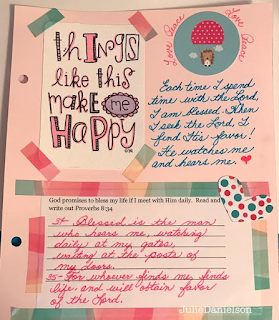 thINGS
like this
make me
HAPPY
Love Peace
Love Peace
Each time I spend
time with the Lord,
I am blessed. When
I seek the Lord, I
find His favor!
He watches me
and hears me.
God promises to bless my life if I meet with Him daily. Read and
write out Proverbs 8:34
34 Blessed is the man
who hears me, watching
daily at my gates,
waiting at the posts of
my doors.
35- For whoever finds me, finds
life, and will obtain favor
of the Lord.
JulieDanielson